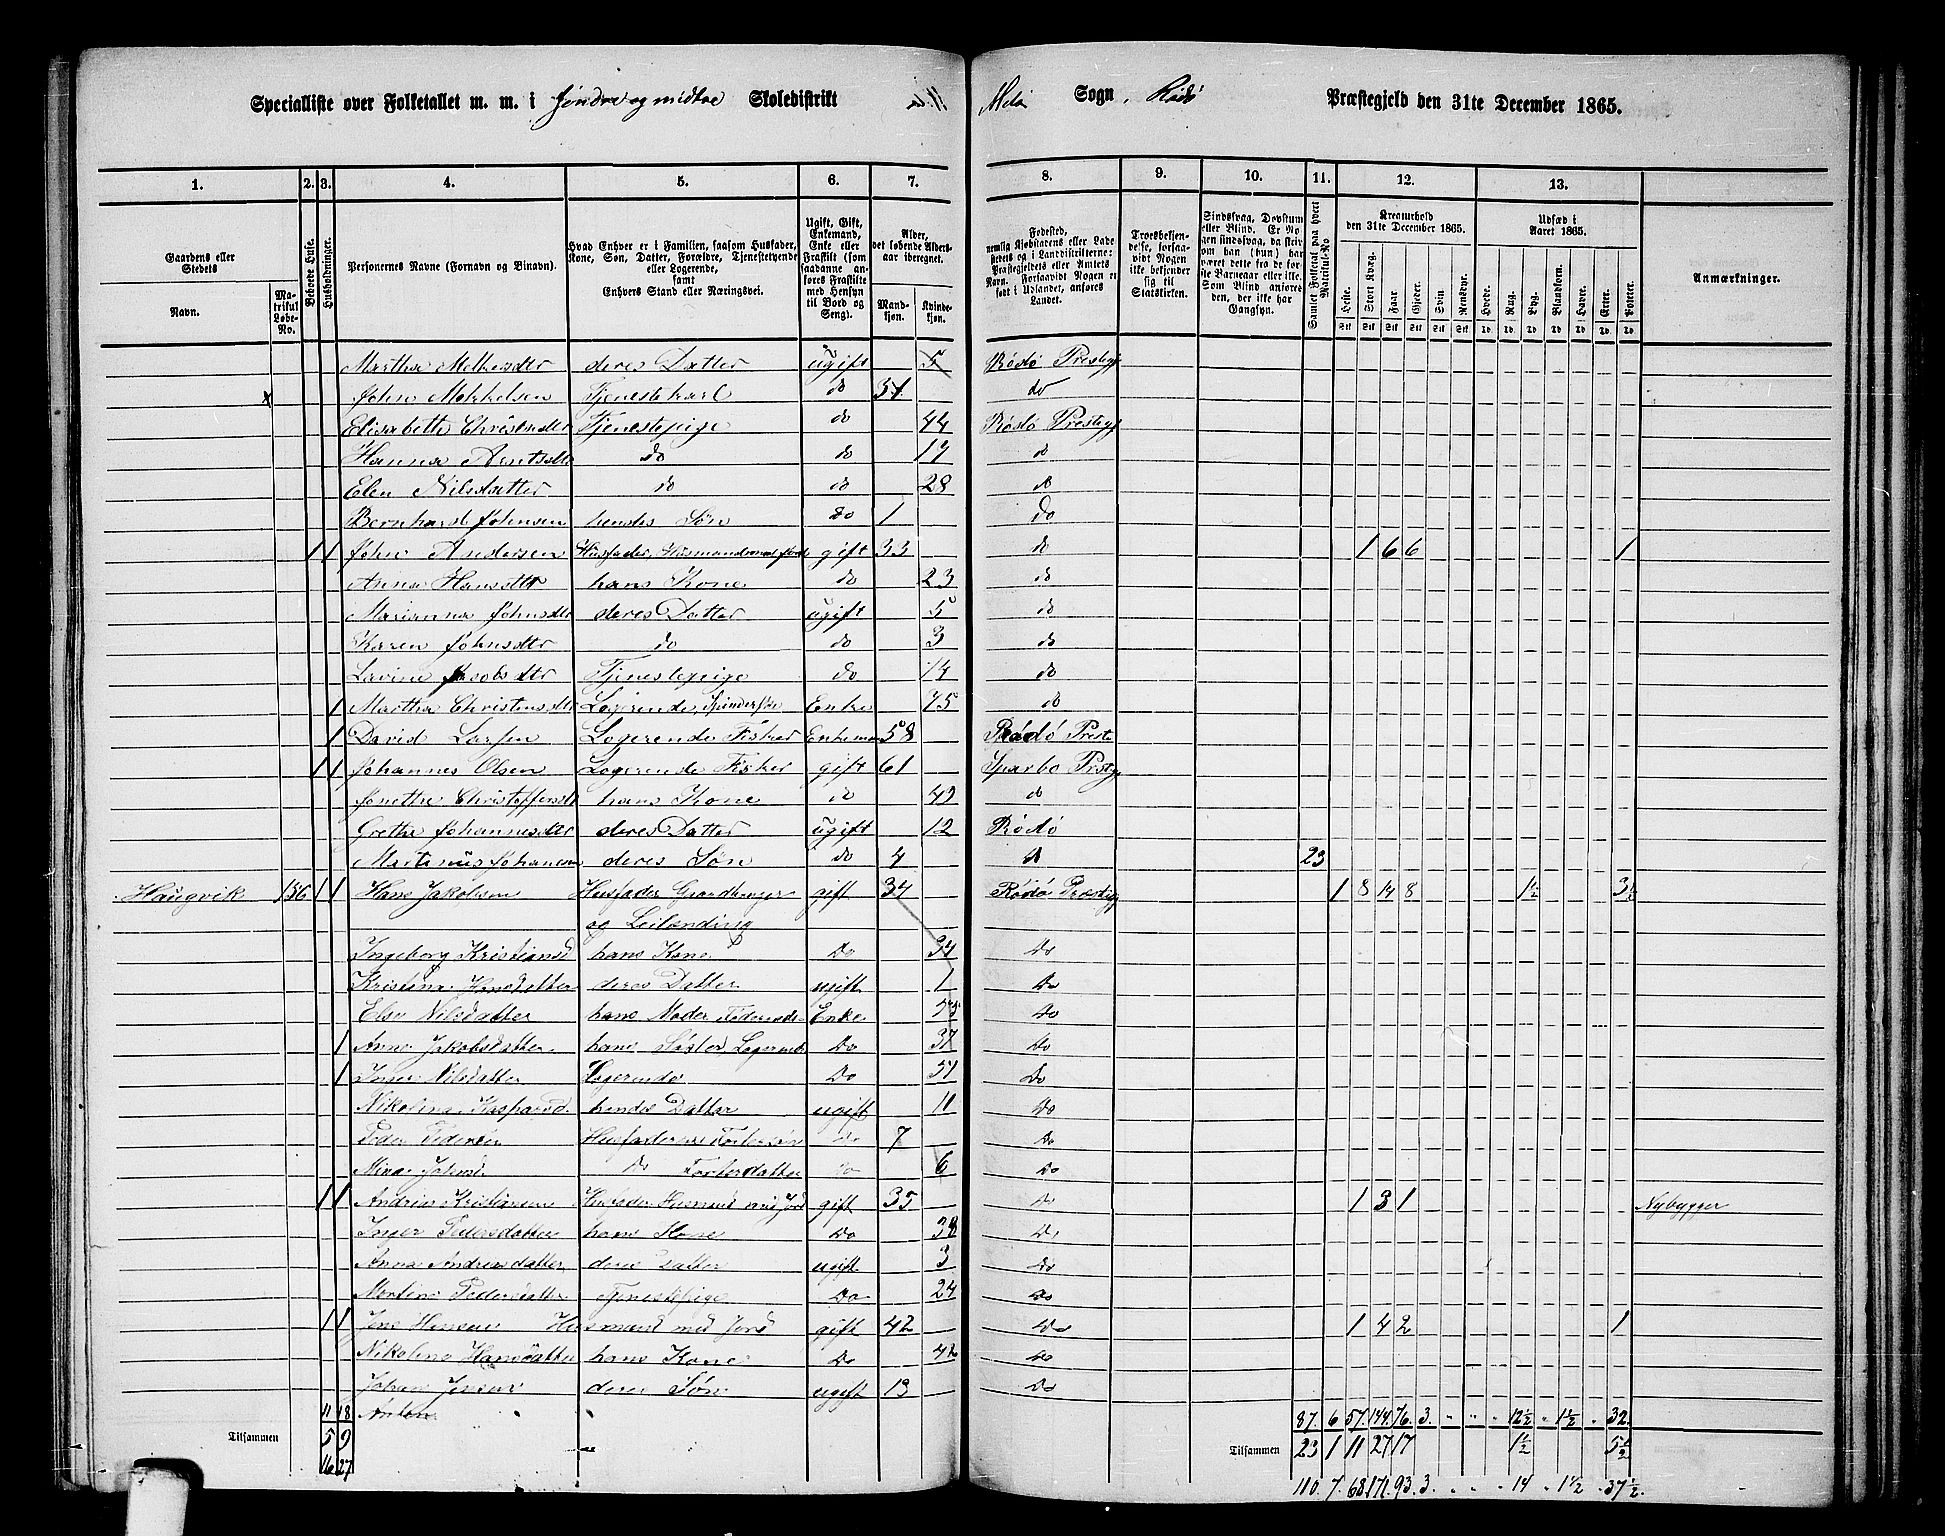 Specialliste over Folketallet m. m. i Søndre og midtre Skoledistrikt
Melø Sogn, Rødø Præstegjeld den 31te December 1865.
1. 2. 3. 4. 5. 6. 7. 8. 9. 10. 11. 12. 13.
Gaardens eller Stedets
Navn.
Matrikul Løbe-No.
Bebøede Huse.
Husholdninger.
Personernes Navne (Fornavn og Binavn).
Hvad Enhver er i Familien, saasom Husfader, Kone, Søn, Datter, Forældre, Tjenestetyende eller Logerende, samt Enhvers Stand eller Næringsvei.
Ugift, Gift, Enkemand, Enke eller Fraskilt (som saadanne anføres Fraskilte med Hensyn til Bord og Seng).
Alder, det løbende Aldersaar iberegnet.
Mandkjøn. Kvindekjøn.
Fødested,
Troesbekjendelse, forsaavidt Nogen ikke bekjender sig til Statskirken.
Samlet Folketal paa hvert Matricul-No
Kreaturhold den 31te December 1865.
Udsæd i Aaret 1865.
Heste. Stort Kvæg. Faar. Gjeder. Svin. Rensdyr. Hvede. Rug. Byg. Blandkorn. Havre. Erter. Poteter.
Anmærkninger.
Martha Melkersdtr deres Datter ugift 5 Rødø Prestegj
John Mikkelsen Tjenestekarl do 31 do
Elisabeth Christensdtr Tjenestepige do 44 Rødø Prestegj
Hanna Arntsdtr do do 17 do
Elen Nilsdatter do do 28 do
Bernhard Johnsen hendes Søn do 1 do
1 1 John Andersen Husfader, Husmand med Jord gift 33 do 1 6 6 1
Anna Hansdtr hans Kone do 23 do
Marianna Johnsdtr deres Datter ugift 5 do
Karen Johnsdtr do do 3 do
Lavine Jacobsdtr Tjenestepige do 14 do
1 Martha Christensdtr Logerende, Spinderske Enke 75 do
1 David Larsen Logerende Fisker Enkeman 58 Rødø Preste
1 1 Johannes Olsen Logerende Fisker gift 61 Sparbo Prstgj
Jonetha Christoffersdtr hans Kone do 49 do
Gretha Johannesdtr deres Datter ugift 12 Rødø
Martinus Johanesen deres Søn do 4 do 23
Haugvik 136 1 1 Hans Jakobsen Husfader Gaardbruger gift 34 Rødø Præstegj 1 8 14 8 1½ 3½
og Leilænding
Ingeborg Kristiansd hans Kone Do 34 Do
Kristina Hansdatter deres Datter ugift 1 Do
Else Nilsdatter hans Moder Føderaads Enke 73 Do
1 Anne Jakobsdatter hans Søster, Logerende Do 37 Do
1 Inger Nilsdatter Logerende Do 51 Do
Nikolina Kaspersd. hendes Datter ugift 11 Do
Peder Pedersen Husfaderens Fostersøn Do 7 Do
Mina Johnsd Do Fosterdatter Do 6 Do
1 1 Andrias Kristiansen Husfader Husmand med Jord gift 35 Do 1 3 1 Nybygger
Inger Pedersdatter hans Kone Do 34 Do
Anna Andriasdatter deres Datter ugift 3 Do
Martine Pedersdatter Tjenestepige Do 24 Do
1 1 Jens Hansen Husmand med Jord gift 42 Do 1 4 2 1
Nikoline Hansdatter hans Kone Do 42 Do
Johan Jensen deres Søn ugift 13 Do
11 18 Anton " " 87. 6 57. 144. 76. 3. " " " 12½ " 1½ " 32.
Tilsammen 5 9 Tilsammen 23 1 11 27 17 1½ 5½
16 27 110. 7. 68. 171. 93. 3. 14 1½ 37½.